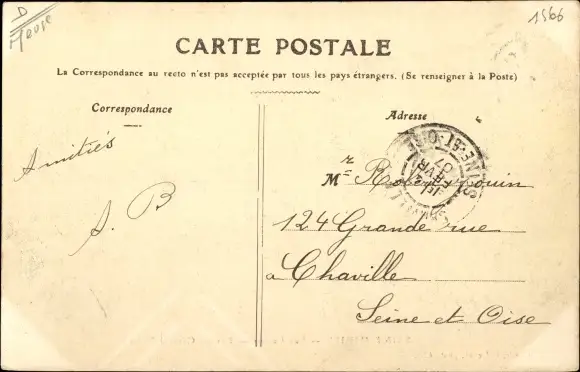 D
Meuse
1566
CARTE POSTALE
La Correspondance au recto n'est pas acceptée par tous les pays étrangers. (Se renseigner à la Poste)
Correspondance
Adresse
Amitiés
A. B
Mr
124 Grande rue
a Chaville
Seine et Oise
SEINE-ET-OISE
FEVR
07